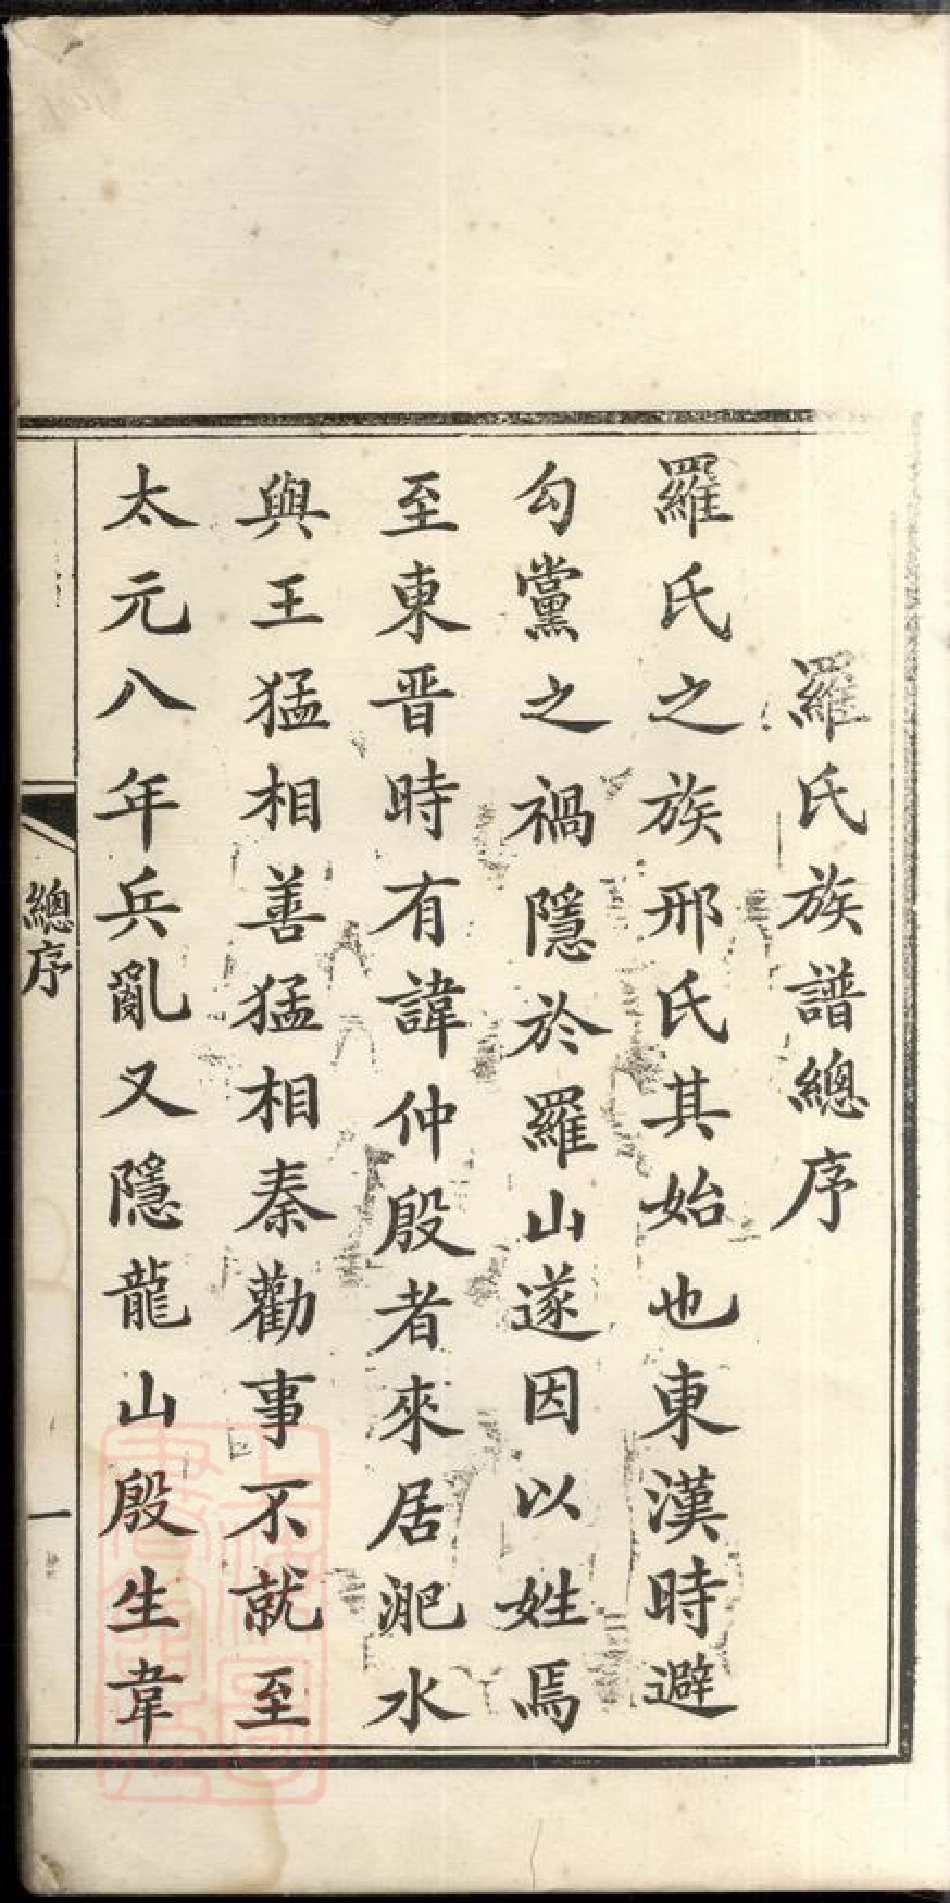 羅氏族譜總序
羅氏之族邢氏其始也東漢時避
勾黨之禍隱於羅山遂因以姓焉
至東晋時有諱仲殷者來居淝水
與王猛相善猛相秦勸事不就至
太元八年兵亂又隱龍山殷生韋
總序
一